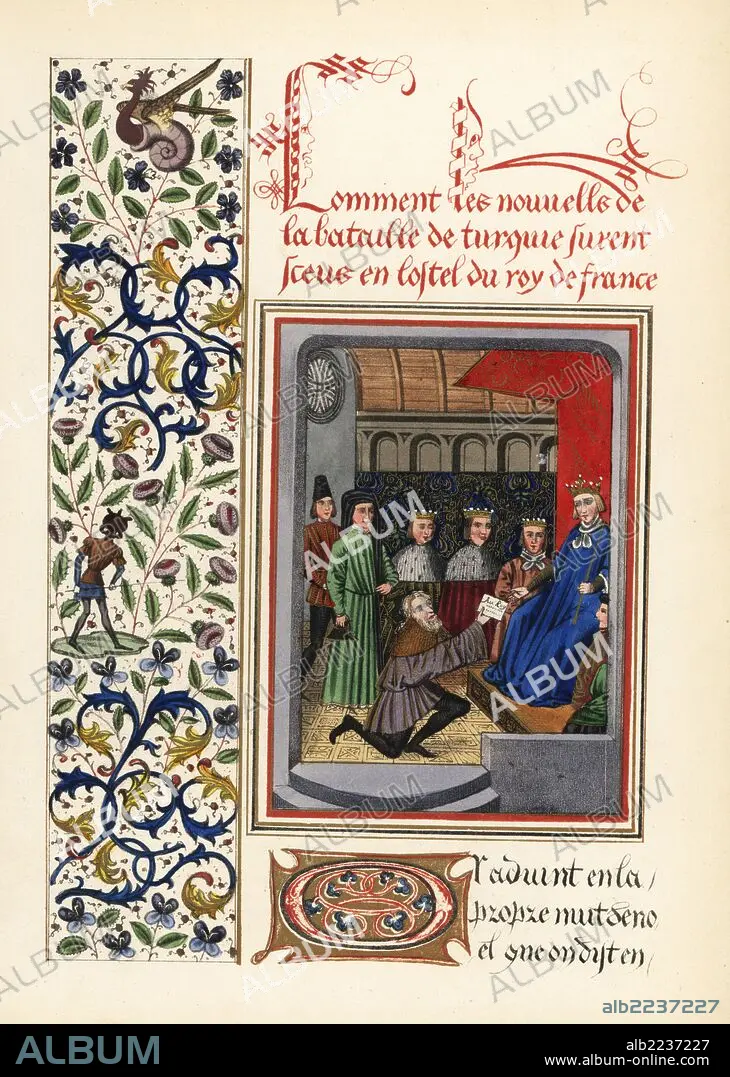 Comment les nouuells de
la bataille de turquie furent
sceus en lostel du roy de france
Au Roy
Or aduint en la
propre nuit de no
el que on dist en
alb2237227
ALBUM
alb2237227
www.album-online.com